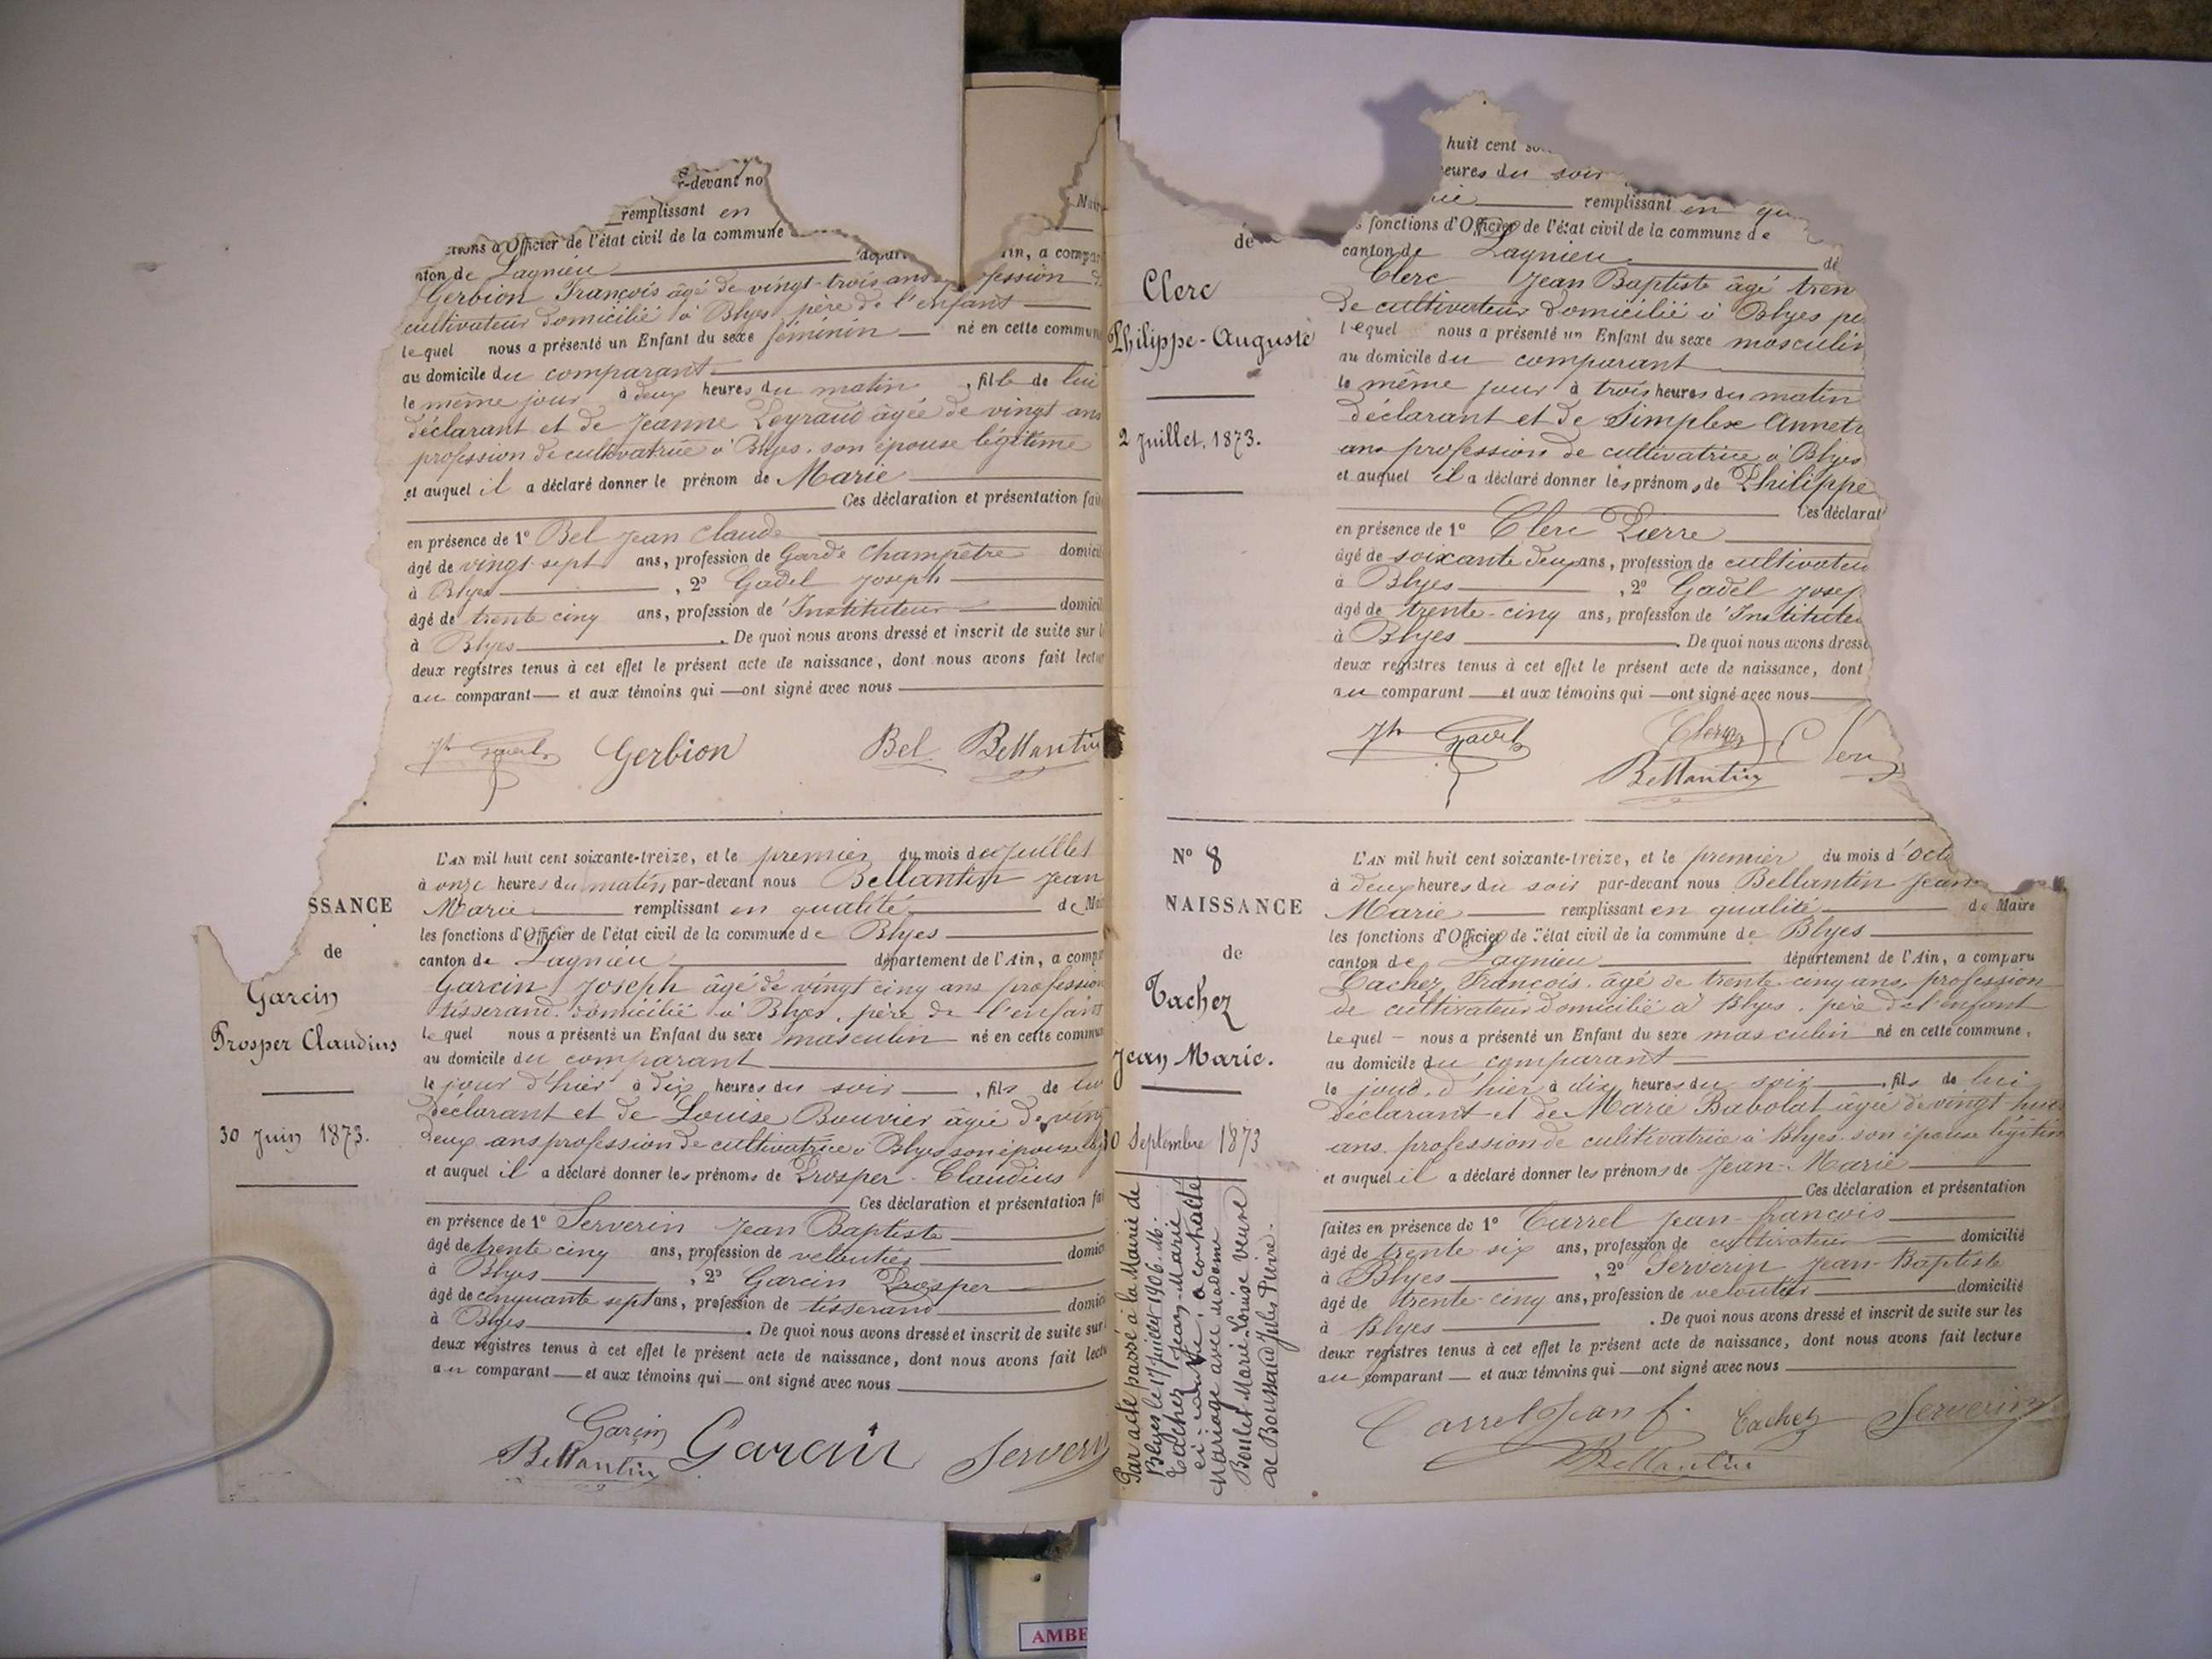 r-devant no
remplissant en
Officier de l'état civil de la commune
nton de Lagnieu
Gerbion François âgé de vingt-trois ans
cultivateur domicilié à Blyes père de l'enfant
lequel nous a présenté un Enfant du sexe féminin né en cette commun
au domicile du comparant
le même jour à deux heures du matin, fille de lui
déclarant et de Jeanne Peyraud âgée de vingt ans
profession de cultivatrice à Blyes, son épouse légitime
et auquel il a déclaré donner le prénom de Marie
Ces déclaration et présentation fait
en présence de 1° Bel Jean Claude
âgé de vingt-sept ans, profession de Garde Champêtre domici
à Blyes, 2° Gadel Joseph
âgé de trente cinq ans, profession de Instituteur domicil
à Blyes. De quoi nous avons dressé et inscrit de suite sur l
deux registres tenus à cet effet le présent acte de naissance, dont nous avons fait lectur
au comparant — et aux témoins qui — ont signé avec nous
Gerbion Bel Bellantin
SSANCE
de
Garcin
Prosper Claudius
30 Juin 1873.
L'AN mil huit cent soixante-treize, et le premier du mois de Juillet
à onze heures du matin par-devant nous Bellantin Jean
Marie remplissant en qualité de Mai
les fonctions d'Officier de l'état civil de la commune de Blyes
canton de Lagnieu département de l'Ain, a compr
Garcin Joseph âgé de vingt cinq ans profession
tisserand domicilié à Blyes, père de l'enfant
lequel nous a présenté un Enfant du sexe masculin né en cette commun
au domicile du comparant
le jour d'hier à dix heures du soir, fils de lui
déclarant et de Louise Bouvier âgée de ving
deux ans profession de cultivatrice à Blyes son épouse lég
et auquel il a déclaré donner les prénoms de Prosper-Claudius
Ces déclaration et présentation fai
en présence de 1° Serverin Jean Baptiste
âgé de trente cinq ans, profession de veloutier domici
à Blyes, 2° Garcin Prosper
âgé de cinquante sept ans, profession de tisserand domici
à Blyes. De quoi nous avons dressé et inscrit de suite sur
deux registres tenus à cet effet le présent acte de naissance, dont nous avons fait lectu
au comparant — et aux témoins qui — ont signé avec nous
Garcin
Bellantin Garcin Serverin
de
Clerc
Philippe-Auguste
2 Juillet. 1873.
huit cent so
eures du soir
remplissant en qu
s fonctions d'Officier de l'état civil de la commune de
canton de Lagnieu dé
Clerc Jean Baptiste âgé tren
de cultivateur domicilié à Blyes pè
lequel nous a présenté un Enfant du sexe masculin
au domicile du comparant
le même jour à trois heures du matin
déclarant et de Simplex Annet
ans profession de cultivatrice à Blyes
et auquel il a déclaré donner les prénoms de Philippe
Ces déclarat
en présence de 1° Clerc Pierre
âgé de soixante deux ans, profession de cultivateu
à Blyes, 2° Gadel Josep
âgé de trente-cinq ans, profession de Institute
à Blyes. De quoi nous avons dressé
deux registres tenus à cet effet le présent acte de naissance, dont
au comparant — et aux témoins qui — ont signé avec nous
Clerc
Bellantin
N° 8
NAISSANCE
de
Tachez
Jean Marie.
30 Septembre 1873
Par acte passé à la Mairie de
Blyes le 17 1906.
Jean-Marie
ci-contre, a contracté
mariage avec Madame
Boulet Marie-Louise veuve
de Boussard Jules Pierre.
L'AN mil huit cent soixante-treize, et le premier du mois d'Octo
à deux heures du soir par-devant nous Bellantin Jean
Marie remplissant en qualité de Maire
les fonctions d'Officier de l'état civil de la commune de Blyes
canton de Lagnieu département de l'Ain, a comparu
Tachez François, âgé de trente-cinq ans, profession
de cultivateur domicilié à Blyes, père de l'enfant
Lequel — nous a présenté un Enfant du sexe masculin né en cette commune,
au domicile du comparant
le jour d'hier à dix heures du soir, fils de lui
déclarant et de Marie Babolat âgée de vingt huit
ans profession de cultivatrice à Blyes son épouse légitim
et auquel il a déclaré donner les prénoms de Jean-Marie
Ces déclaration et présentation
faites en présence de 1° Carrel Jean-françois
âgé de trente six ans, profession de cultivateur domicilié
à Blyes, 2° Serverin Jean-Baptiste
âgé de trente-cinq ans, profession de veloutier domicilié
à Blyes. De quoi nous avons dressé et inscrit de suite sur les
deux registres tenus à cet effet le présent acte de naissance, dont nous avons fait lecture
au comparant — et aux témoins qui — ont signé avec nous
Carrel Jean f. Tachez Serverin
Bellantin
AMBE